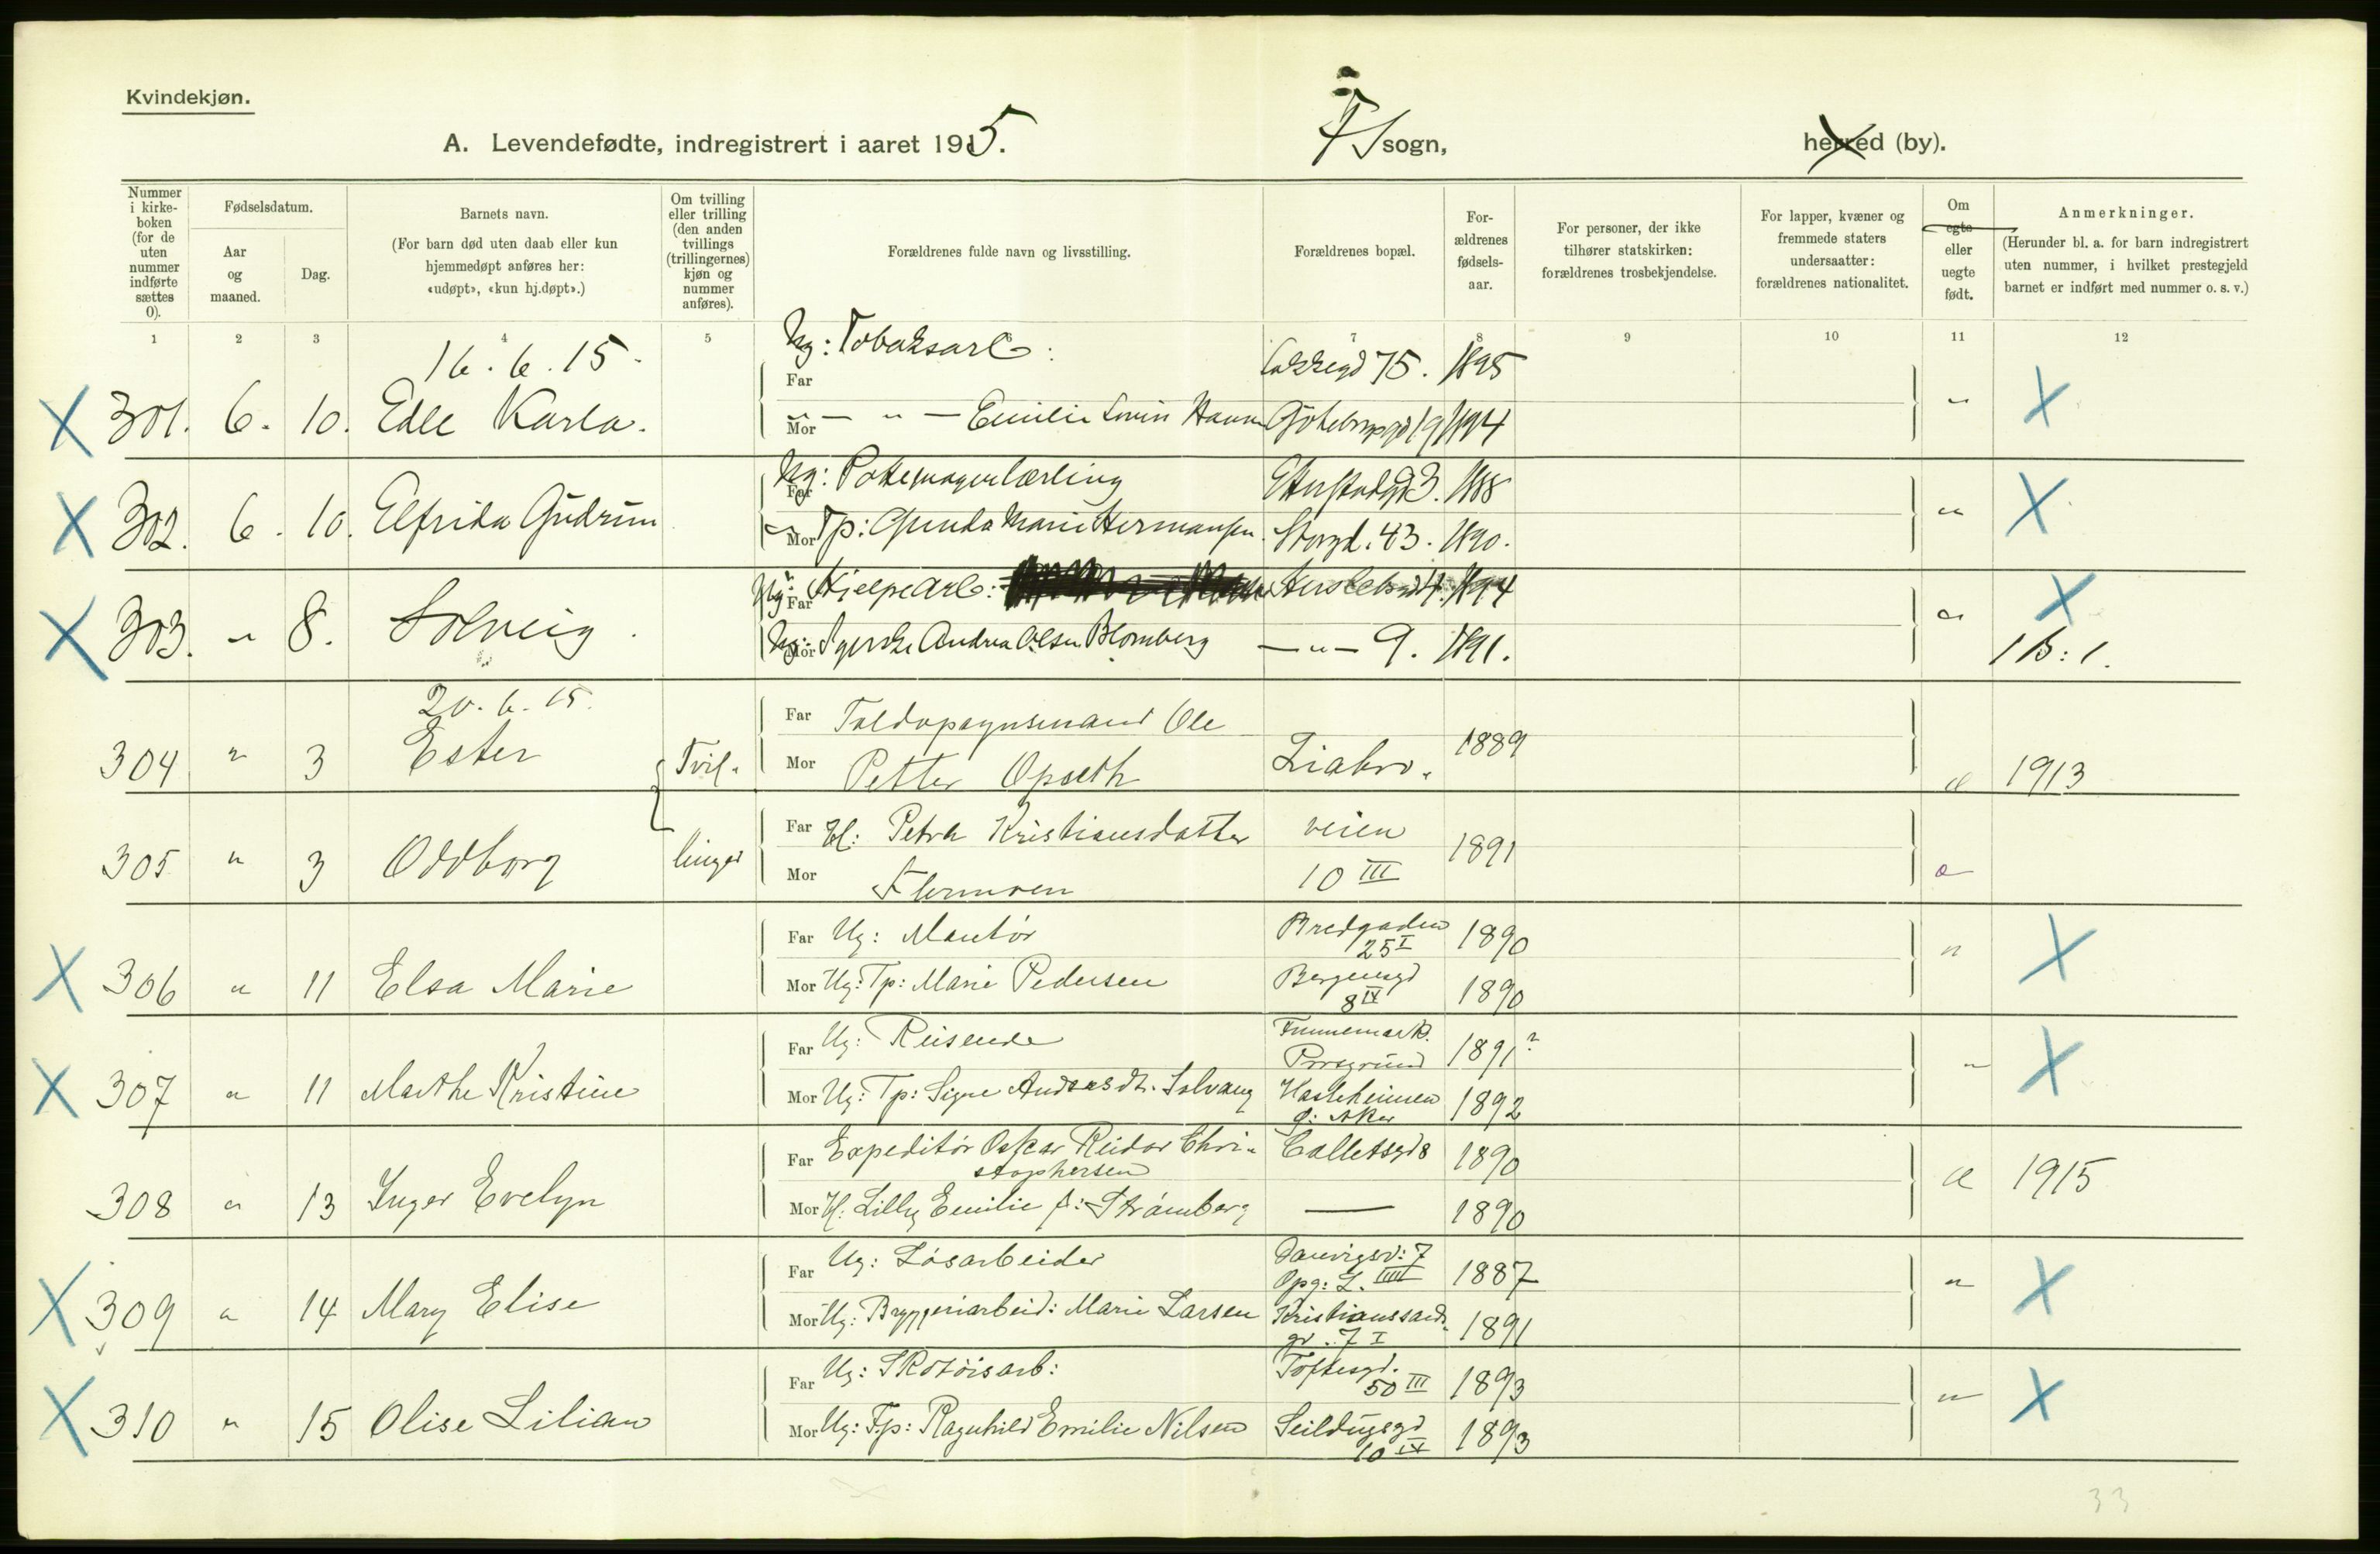 Kvindekjøn.
A. Levendefødte, indregistrert i aaret 1915.
sogn,
herred (by).
Nummer i kirke-boken (for de uten nummer indførte sættes 0).
Fødselsdatum.
Aar og maaned.
Dag.
Barnets navn.
(For barn død uten daab eller kun hjemmedøpt anføres her: «udøpt», «kun hj.døpt».)
Om tvilling eller trilling (den anden tvillings (trillingernes) kjøn og nummer anføres).
Forældrenes fulde navn og livsstilling.
Forældrenes bopæl.
For-ældrenes fødsels-aar.
For personer, der ikke tilhører statskirken: forældrenes trosbekjendelse.
For lapper, kvæner og fremmede staters undersaatter: forældrenes nationalitet.
Om egte eller uegte født.
Anmerkninger.
(Herunder bl. a. for barn indregistrert uten nummer, i hvilket prestegjeld barnet er indført med nummer o. s. v.)
1 2 3 4 5 6 7 8 9 10 11 12
16.6.15.
Far Ug: Tobaksarb: 75. 1895
X 301. 6. 10. Edle Karla. Mor — " — Emilie 19 1894 " X
Far Ug: Pottemagerlærling 3. 1888
X 302. 6. 10. Elfrida Gudrun Mor Tp: Gunda Marie Hermansen Storgd. 43. 1890. " X
Far Ug: Hjelpearb: 4. 1894
X 303. " 8. Solveig. Mor Ug: Syerske Andrea Olsen Blomberg — " — 9. 1891. X
1 B: 1.
20.6.15.
304 " 3 Ester Tvil- Far Toldopsynsmand Ole
Mor Petter Opseth Liabro- 1889 1913
305 " 3 Oddborg linger Far H: Petra Kristiansdatter veien
Mor 10 III 1891
Far Ug: Montør Bredgaden 25 I 1890
X 306 " 11 Elsa Marie Mor Ug: Tp: Marie Pedersen Bergensgd 8 IV 1890 " X
Far Ug: Reisende Porsgrund 1891?
X 307 " 11 Marthe Kristine Mor Ug: Tp: Signe Andreasdt. Solvang Hasleheimen Ø: Aker 1892 " X
Far Expeditør Oskar Reidar Chri-
stophersen Collettsgd 8 1890
308 " 13 Inger Evelyn Mor H: Lilly Emilie f: Strømberg — 1890 1915
Far Ug: Løsarbeider 7
Opg: L. IIII 1887
X 309 " 14 Mary Elise Mor Ug: Bryggeriarbeid: Marie Larsen Kristianssands-
gd. 7 I 1891 " X
Far Ug: Skotøisarb: Toftesgd. 50 III 1893
X 310 " 15 Olise Lilian Mor Ug: Fp: Ragnhild Emilie Nilsen Seildugsgd 10 IV 1893 " X
33